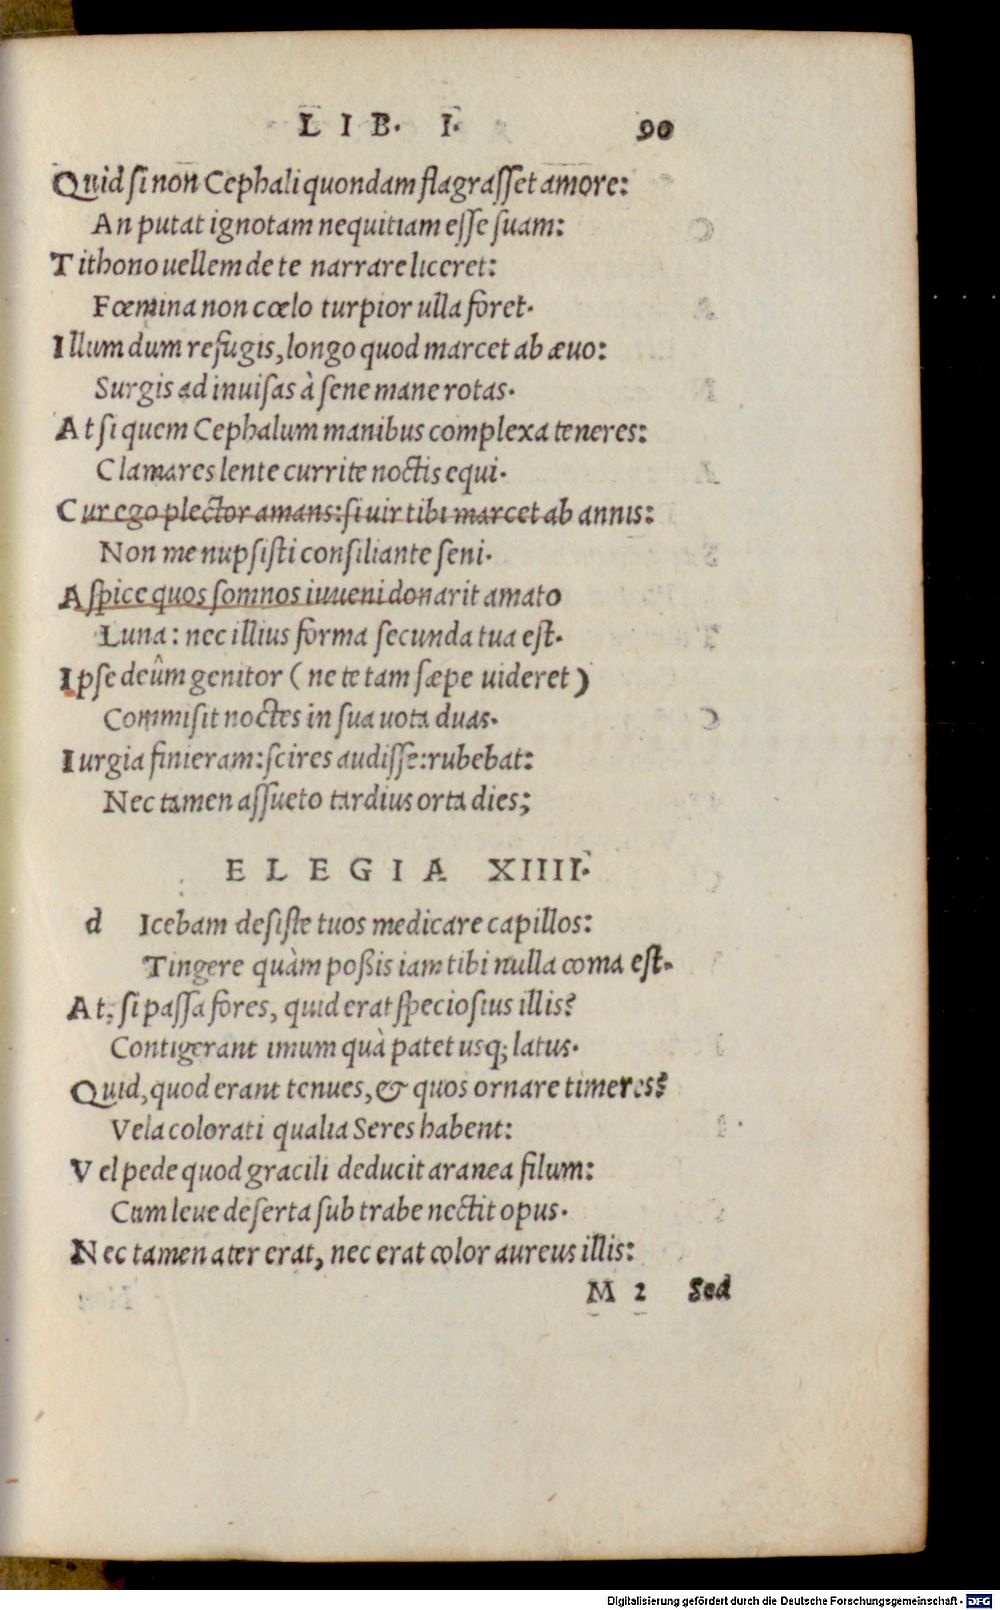 LIB. I. 90
Quid si non Cephali quondam flagrasset amore:
An putat ignotam nequitiam esse suam:
Tithono uellem de te narrare liceret:
Fœmina non cœlo turpior ulla foret.
Illum dum refugis, longo quod marcet ab æuo:
Surgis ad inuisas à sene mane rotas.
At si quem Cephalum manibus complexa teneres:
Clamares lente currite noctis equi.
Cur ego plector amans: si uir tibi marcet ab annis:
Non me nupsisti consiliante seni.
Aspice quos somnos iuueni donarit amato
Luna: nec illius forma secunda tua est.
Ipse deûm genitor (ne te tam sæpe uideret)
Commisit noctes in sua uota duas.
Iurgia finieram: scires audisse: rubebat:
Nec tamen assueto tardius orta dies;
ELEGIA XIIII.
d Icebam desiste tuos medicare capillos:
Tingere quàm poßis iam tibi nulla coma est.
At, si passa fores, quid erat speciosius illis?
Contigerant imum quà patet usq; latus.
Quid, quod erant tenues, & quos ornare timeres?
Vela colorati qualia Seres habent:
Vel pede quod gracili deducit aranea filum:
Cum leue deserta sub trabe nectit opus.
Nec tamen ater erat, nec erat color aureus illis:
M 2 Sed
Digitalisierung gefördert durch die Deutsche Forschungsgemeinschaft - DFG